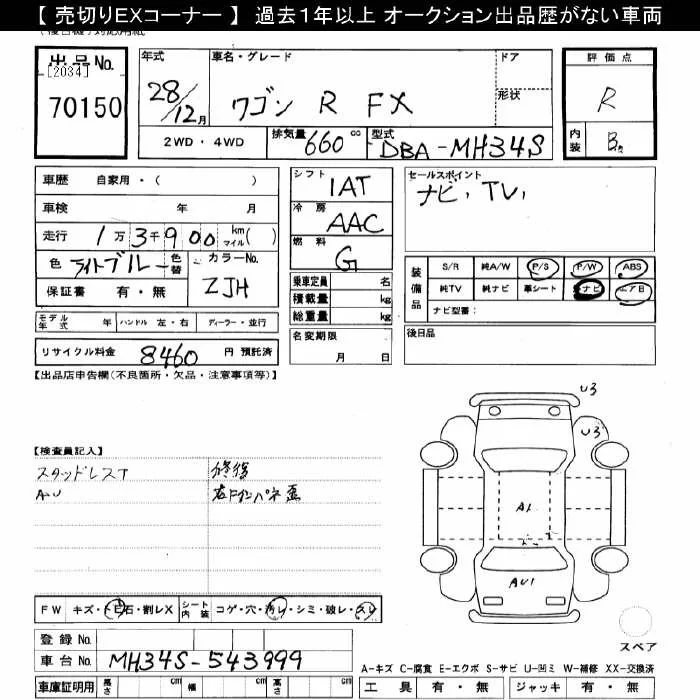 【 売切りEXコーナー 】 過去1年以上 オークション出品歴がない車両
出品No.
[2034]
70150
年式
28/12月
車名・グレード
ワゴン R FX
ドア
形状
2WD・4WD
排気量 660 cc
型式 DBA-MH34S
評価点
R
内装
B
車歴 自家用・( )
車検 年 月
走行 1万3千900 km マイル( )
色 ライトブルー 色替
カラーNo.
ZJH
保証書 有・無
シフト 1AT
冷房 AAC
燃料 G
乗車定員 名
積載量 kg
総重量 kg
名変期限
月 日
セールスポイント
ナビ, TV,
装備品
S/R 純A/W P/S P/W ABS
純TV 純ナビ 革シート ナビ エアB
ナビ型番:
後日品
モデル年式 年 ハンドル 左・右 ディーラー・並行
リサイクル料金 8460 円 預託済
【出品店申告欄(不良箇所・欠品・注意事項等)】
【検査員記入】
スタッドレスT
AU
修復
U3
U3
A1
AU1
FW キズ・トビ石・割レX
シート内装 コゲ・穴・汚レ・シミ・破レ・スレ
登録No.
車台No. MH34S-543999
車庫証明用 長さ cm 幅 cm 高さ cm
スペア
A-キズ C-腐食 E-エクボ S-サビ U-凹ミ W-補修 XX-交換済
工具 有・無 ジャッキ 有・無